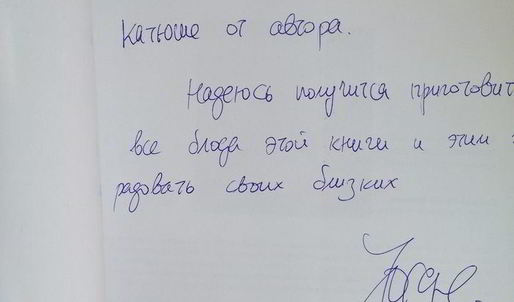 Катюше от автора.
Надеюсь получится приготовит
все блюда этой книги и этим
радовать своих близких